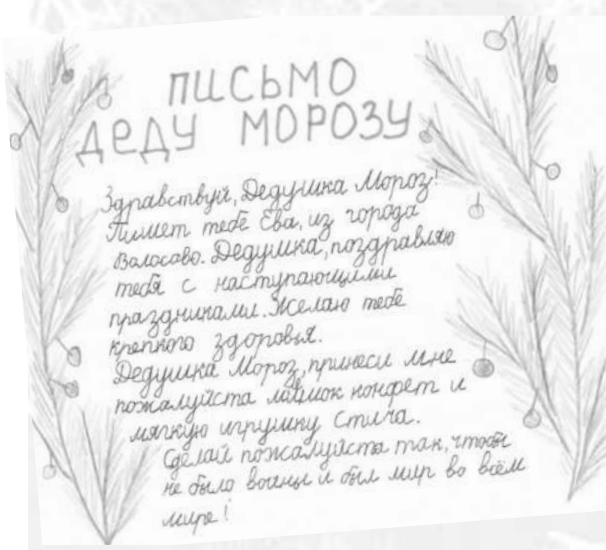 ПИСЬМО
ДЕДУ МОРОЗУ
Здравствуй, Дедушка Мороз!
Пишет тебе Ева, из города
Волосово. Дедушка, поздравляю
тебя с наступающими
праздниками. Желаю тебе
крепкого здоровья.
Дедушка Мороз, принеси мне
пожалуйста мешок конфет и
мягкую игрушку Стича.
Сделай пожалуйста так, чтобы
не было войны и был мир во всём
мире!